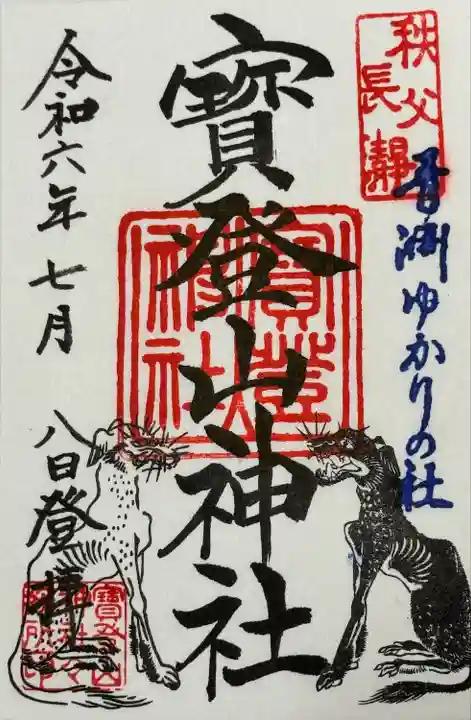 秩父
長瀞
青淵ゆかりの社
寳登山神社
寳登山神社
令和六年七月
八日登拝